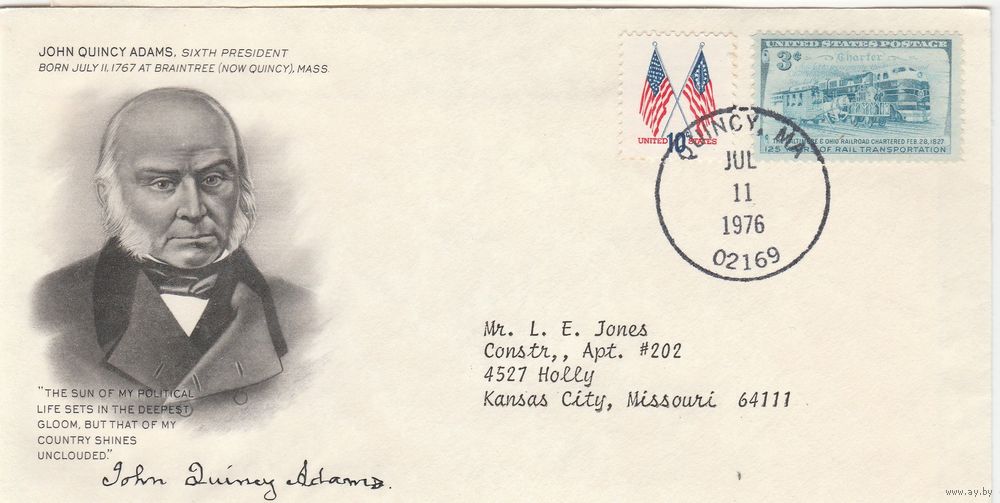 JOHN QUINCY ADAMS, SIXTH PRESIDENT
BORN JULY 11, 1767 AT BRAINTREE (NOW QUINCY), MASS.
UNITED STATES
10c
UNITED STATES POSTAGE
3¢
Charter
THE BALTIMORE & OHIO RAILROAD CHARTERED FEB. 28, 1827
125 YEARS OF RAIL TRANSPORTATION
QUINCY, MA
JUL
11
1976
02169
Mr. L. E. Jones
Constr,, Apt. #202
4527 Holly
Kansas City, Missouri 64111
"THE SUN OF MY POLITICAL
LIFE SETS IN THE DEEPEST
GLOOM, BUT THAT OF MY
COUNTRY SHINES
UNCLOUDED."
John Quincy Adams.
www.ay.by